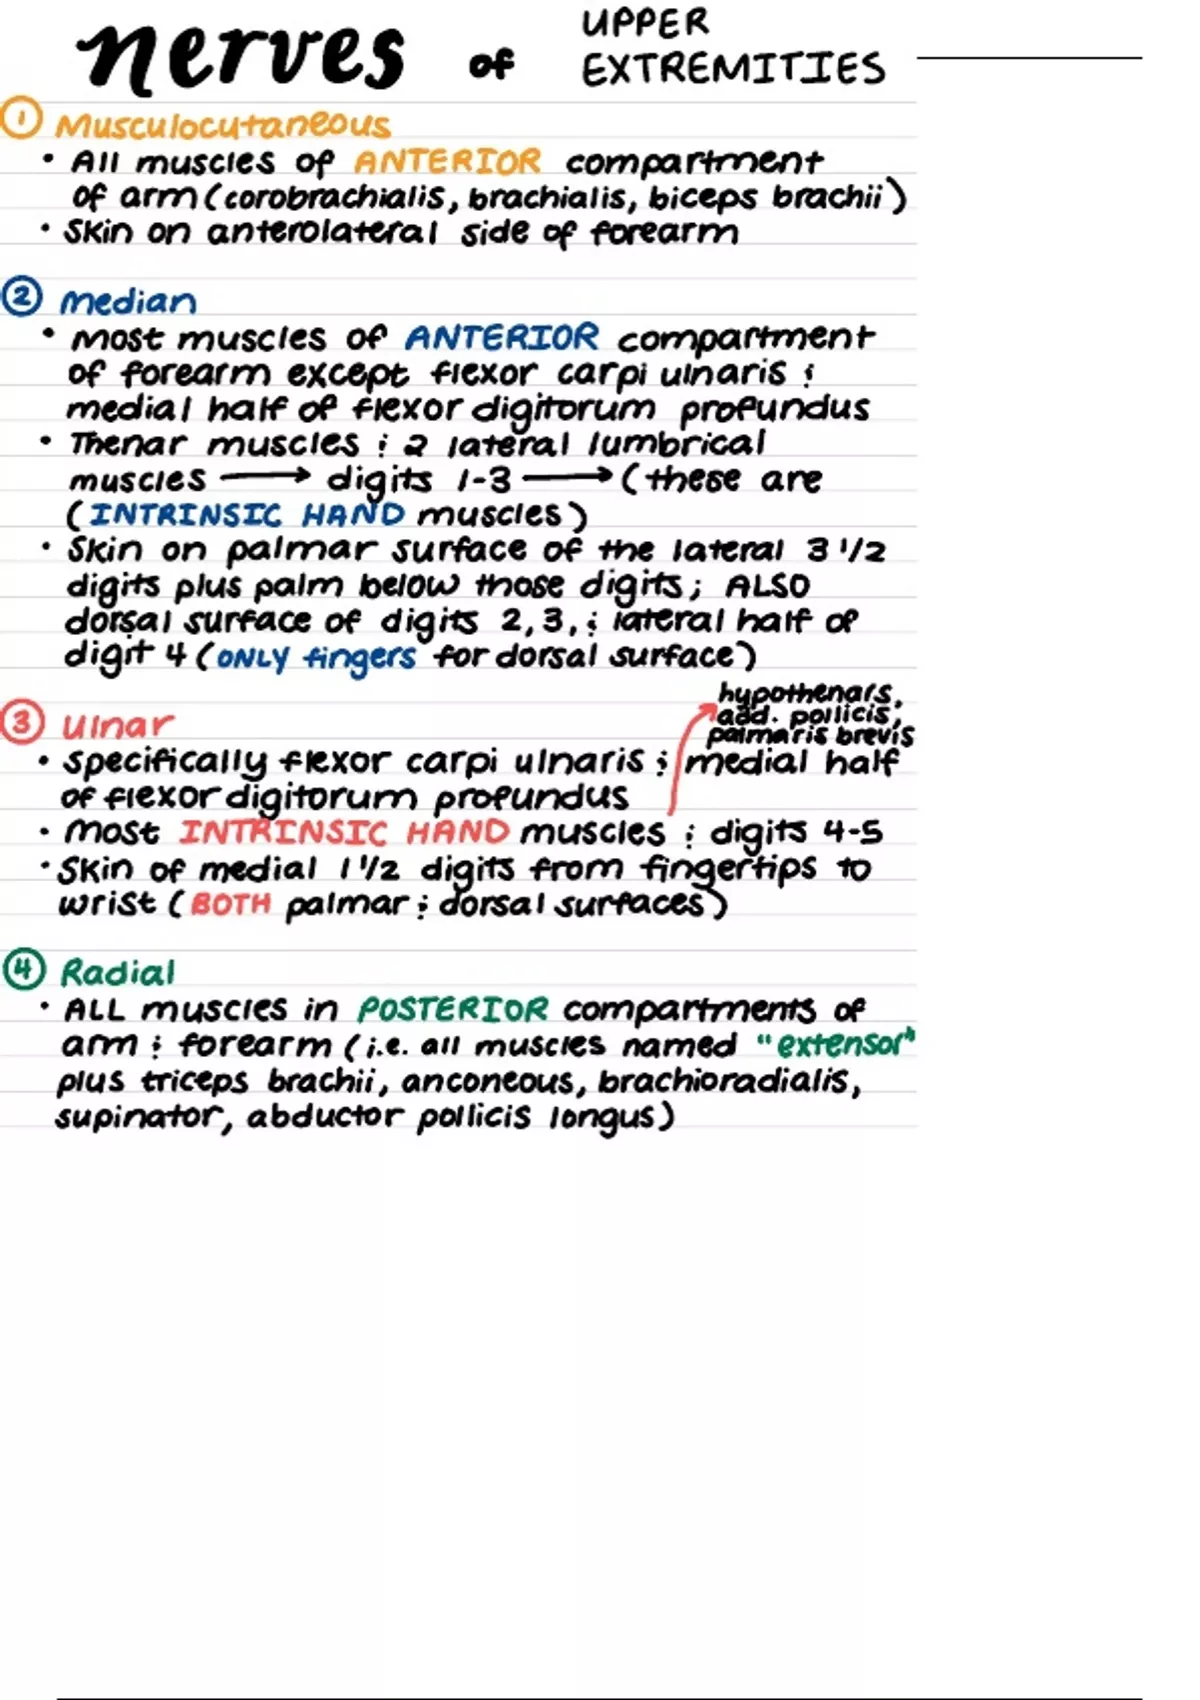 nerves of UPPER EXTREMITIES
① Musculocutaneous
• All muscles of ANTERIOR compartment
of arm (corobrachialis, brachialis, biceps brachii)
• Skin on anterolateral side of forearm
② Median
• Most muscles of ANTERIOR compartment
of forearm except flexor carpi ulnaris &
medial half of flexor digitorum profundus
• Thenar muscles & 2 lateral lumbrical
muscles → digits 1-3 → (these are
(INTRINSIC HAND muscles)
• Skin on palmar surface of the lateral 3 1/2
digits plus palm below those digits; ALSO
dorsal surface of digits 2, 3, & lateral half of
digit 4 (ONLY fingers for dorsal surface)
hypothenars,
add. pollicis,
palmaris brevis
③ Ulnar
• specifically flexor carpi ulnaris & medial half
of flexor digitorum profundus
• Most INTRINSIC HAND muscles & digits 4-5
• Skin of medial 1 1/2 digits from fingertips to
wrist (BOTH palmar & dorsal surfaces)
④ Radial
• ALL muscles in POSTERIOR compartments of
arm & forearm (i.e. all muscles named "extensor"
plus triceps brachii, anconeous, brachioradialis,
supinator, abductor pollicis longus)